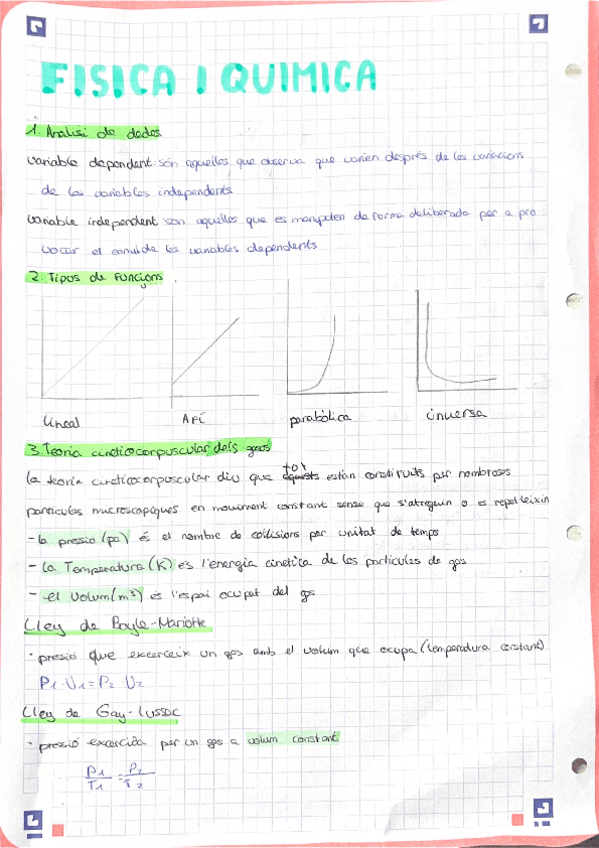 FISICA I QUIMICA
1. Analisi de dades
variable dependent: són aquelles que observa que varien després de les variacions
de les variables independents
variable independent son aquelles que es manipulen de forma deliberada per a pro
vocar el canvi de les variables dependents
2. Tipos de Funcions
lineal
Afí
parabòlica
inversa
3. Teoria cineticocorpuscular dels gasos
la teoría cineticocorpuscular diu que tot están constituïts per nombroses
particules microscopiques en moviment constant sense que s'atreguin o es repel·leixin
- la pressió (pa) és el nombre de col·lisions per unitat de temps
- La Temperatura (K) és l'energia cinetica de les particules de gas
- el Volum (m³) és l'espai ocupat del gas
Lley de Boyle-Mariotte
· pressió que excerceix un gas amb el volum que ocupa (temperatura constant)
P1·V1=P2·V2
Lley de Gay-lussac
· pressió excercida per un gas a volum constant
P1/T1 = P2/T2